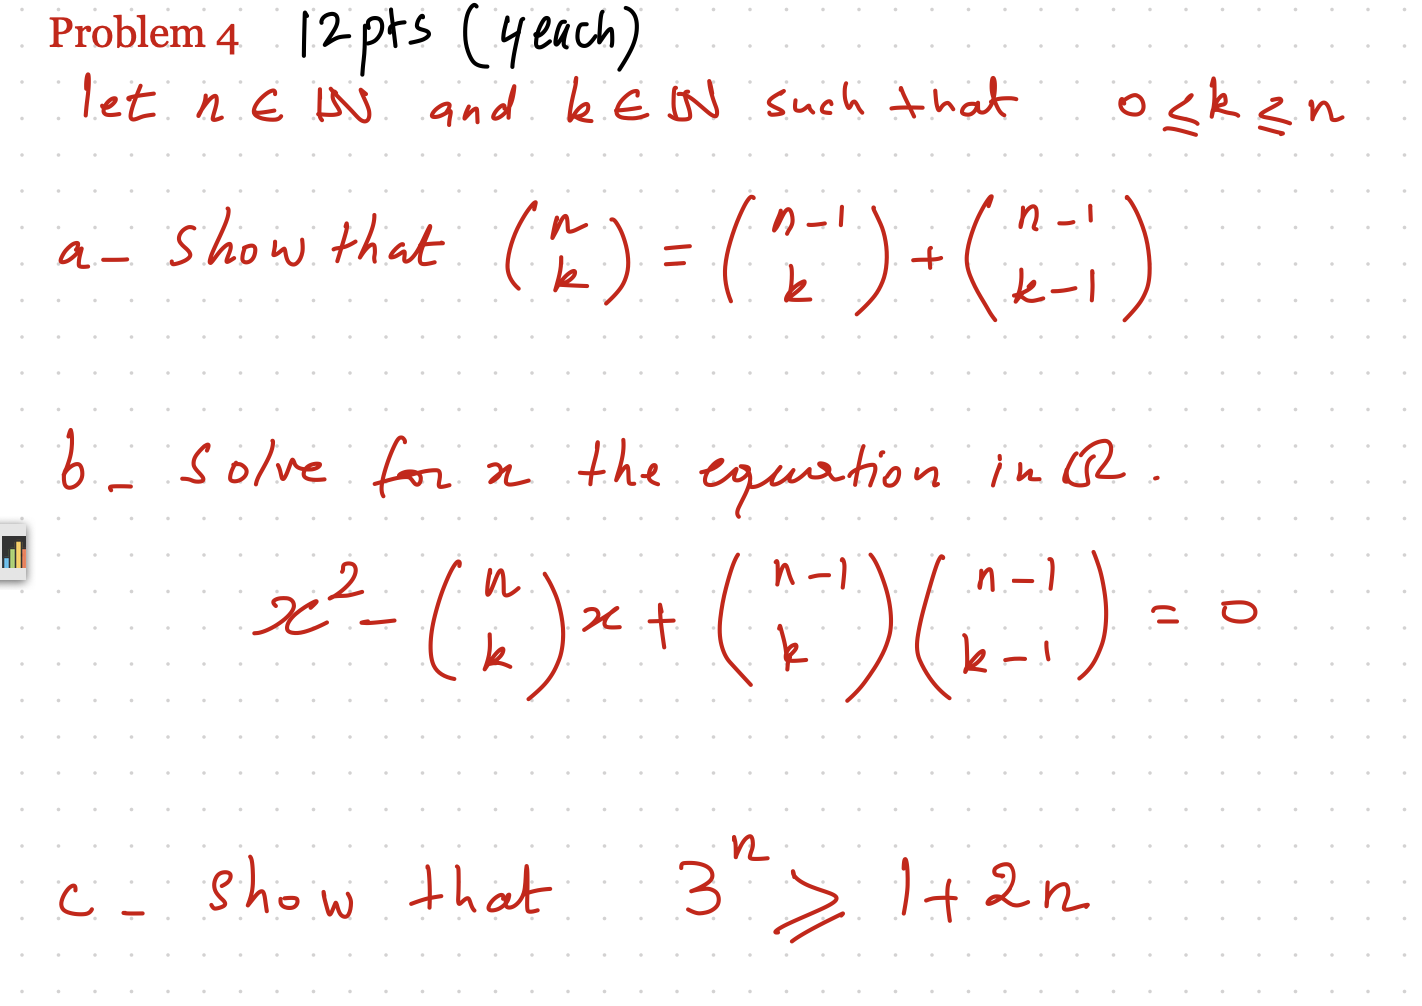 Problem 4 12pts (4 each)
let n ∈ ℕ and k ∈ ℕ such that 0 ≤ k ≤ n
a - show that (n k) = (n-1 k) + (n-1 k-1)
b - solve for x the equation in ℝ.
x² - (n k) x + (n-1 k) (n-1 k-1) = 0
c - show that 3ⁿ ⩾ 1 + 2n